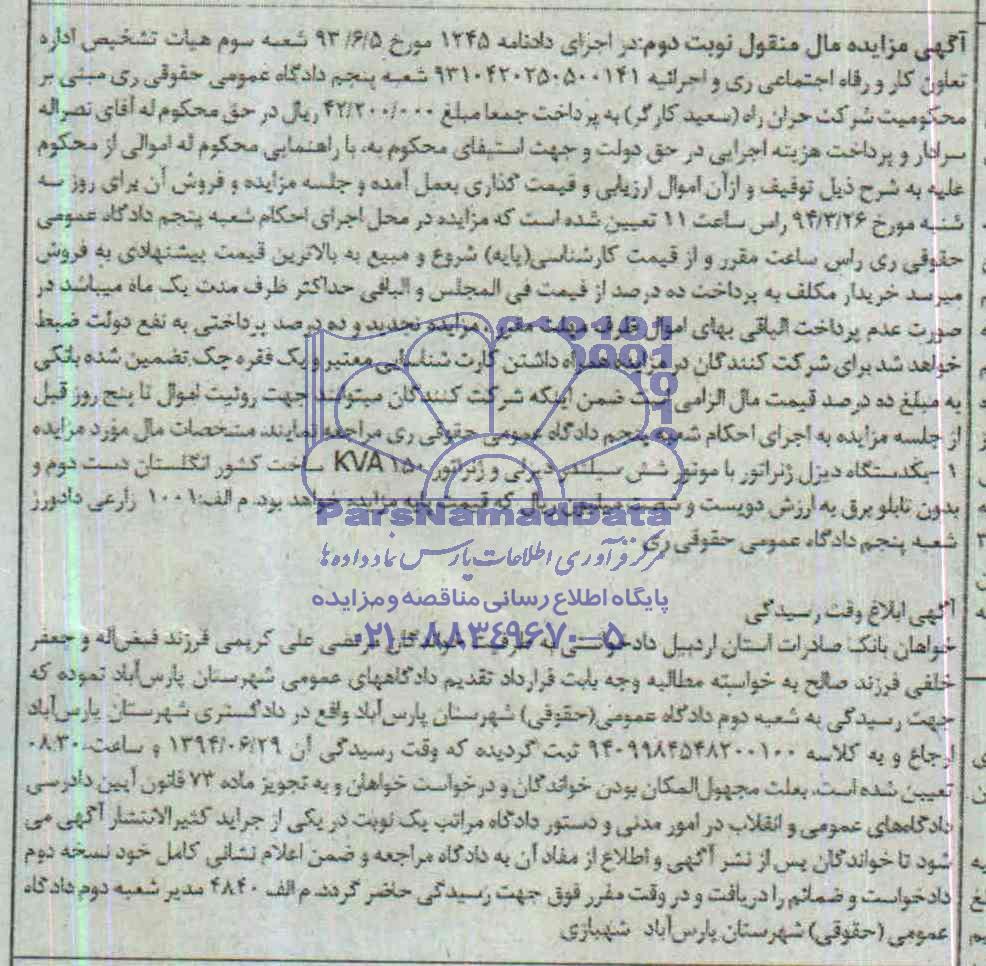 آگهی مزایده مال منقول نوبت دوم:در اجرای دادنامه ۱۲۴۵ مورخ ۹۳/۶/۵ شعبه سوم هیات تشخیص اداره
تعاون کار و رفاه اجتماعی ری و اجرائیه ۹۳۱۰۴۲۰۲۵۰۵۰۰۱۴۱ شعبه پنجم دادگاه عمومی حقوقی ری مبنی بر
محکومیت شرکت حران راه (سعید کارگر) به پرداخت جمعا مبلغ ۴۲/۲۰۰/۰۰۰ ریال در حق محکوم له آقای نصراله
سرادار و پرداخت هزینه اجرایی در حق دولت و جهت استیفای محکوم به، با راهنمایی محکوم له اموالی از محکوم
علیه به شرح ذیل توقیف و ازآن اموال ارزیابی و قیمت گذاری بعمل آمده و جلسه مزایده و فروش آن برای روز سه
شنبه مورخ ۹۴/۳/۲۶ راس ساعت ۱۱ تعیین شده است که مزایده در محل اجرای احکام شعبه پنجم دادگاه عمومی
حقوقی ری راس ساعت مقرر و از قیمت کارشناسی(پایه) شروع و مبیع به بالاترین قیمت پیشنهادی به فروش
میرسد خریدار مکلف به پرداخت ده درصد از قیمت فی المجلس و الباقی حداکثر ظرف مدت یک ماه میباشد در
صورت عدم پرداخت الباقی بهای اموال ظرف مهلت مقرر، مزایده تجدید و ده درصد پرداختی به نفع دولت ضبط
خواهد شد برای شرکت کنندگان در مزایده همراه داشتن کارت شناسایی معتبر و یک فقره چک تضمین شده بانکی
به مبلغ ده درصد قیمت مال الزامی است ضمن اینکه شرکت کنندگان میتوانند جهت روئیت اموال تا پنج روز قبل
از جلسه مزایده به اجرای احکام شعبه پنجم دادگاه عمومی حقوقی ری مراجعه نمایند. مشخصات مال مورد مزایده
۱ -یکدستگاه دیزل ژنراتور با موتور شش سیلندر دیزلی و ژنراتور ۱۵۰ KVA ساخت کشور انگلستان دست دوم و
بدون تابلو برق به ارزش دویست و شصت میلیون ریال که قیمت پایه مزایده خواهد بود. م الف:۱۰۰۱ زارعی دادورز
شعبه پنجم دادگاه عمومی حقوقی ری
ParsNamadData
مرکز فرآوری اطلاعات پارس نماد داده ها
پایگاه اطلاع رسانی مناقصه و مزایده
۰۲۱-۸۸۳۴۹۶۷۰-۵
آگهی ابلاغ وقت رسیدگی
خواهان بانک صادرات استان اردبیل دادخواستی به طرفیت خواندگان مرتضی علی کریمی فرزند فیض‌اله و جعفر
خلفی فرزند صالح به خواسته مطالبه وجه بابت قرارداد تقدیم دادگاههای عمومی شهرستان پارس‌آباد نموده که
جهت رسیدگی به شعبه دوم دادگاه عمومی(حقوقی) شهرستان پارس‌آباد واقع در دادگستری شهرستان پارس‌آباد
ارجاع و به کلاسه ۹۴۰۹۹۸۴۵۴۸۲۰۰۱۰۰ ثبت گردیده که وقت رسیدگی آن ۱۳۹۴/۰۶/۲۹ و ساعت ۰۸:۳۰
تعیین شده است. بعلت مجهول‌المکان بودن خواندگان و درخواست خواهان و به تجویز ماده ۷۳ قانون آیین دادرسی
دادگاه‌های عمومی و انقلاب در امور مدنی و دستور دادگاه مراتب یک نوبت در یکی از جراید کثیرالانتشار آگهی می
شود تا خواندگان پس از نشر آگهی و اطلاع از مفاد آن به دادگاه مراجعه و ضمن اعلام نشانی کامل خود نسخه دوم
دادخواست و ضمائم را دریافت و در وقت مقرر فوق جهت رسیدگی حاضر گردد. م الف ۴۸۴۰ مدیر شعبه دوم دادگاه
عمومی (حقوقی) شهرستان پارس‌آباد شهبازی